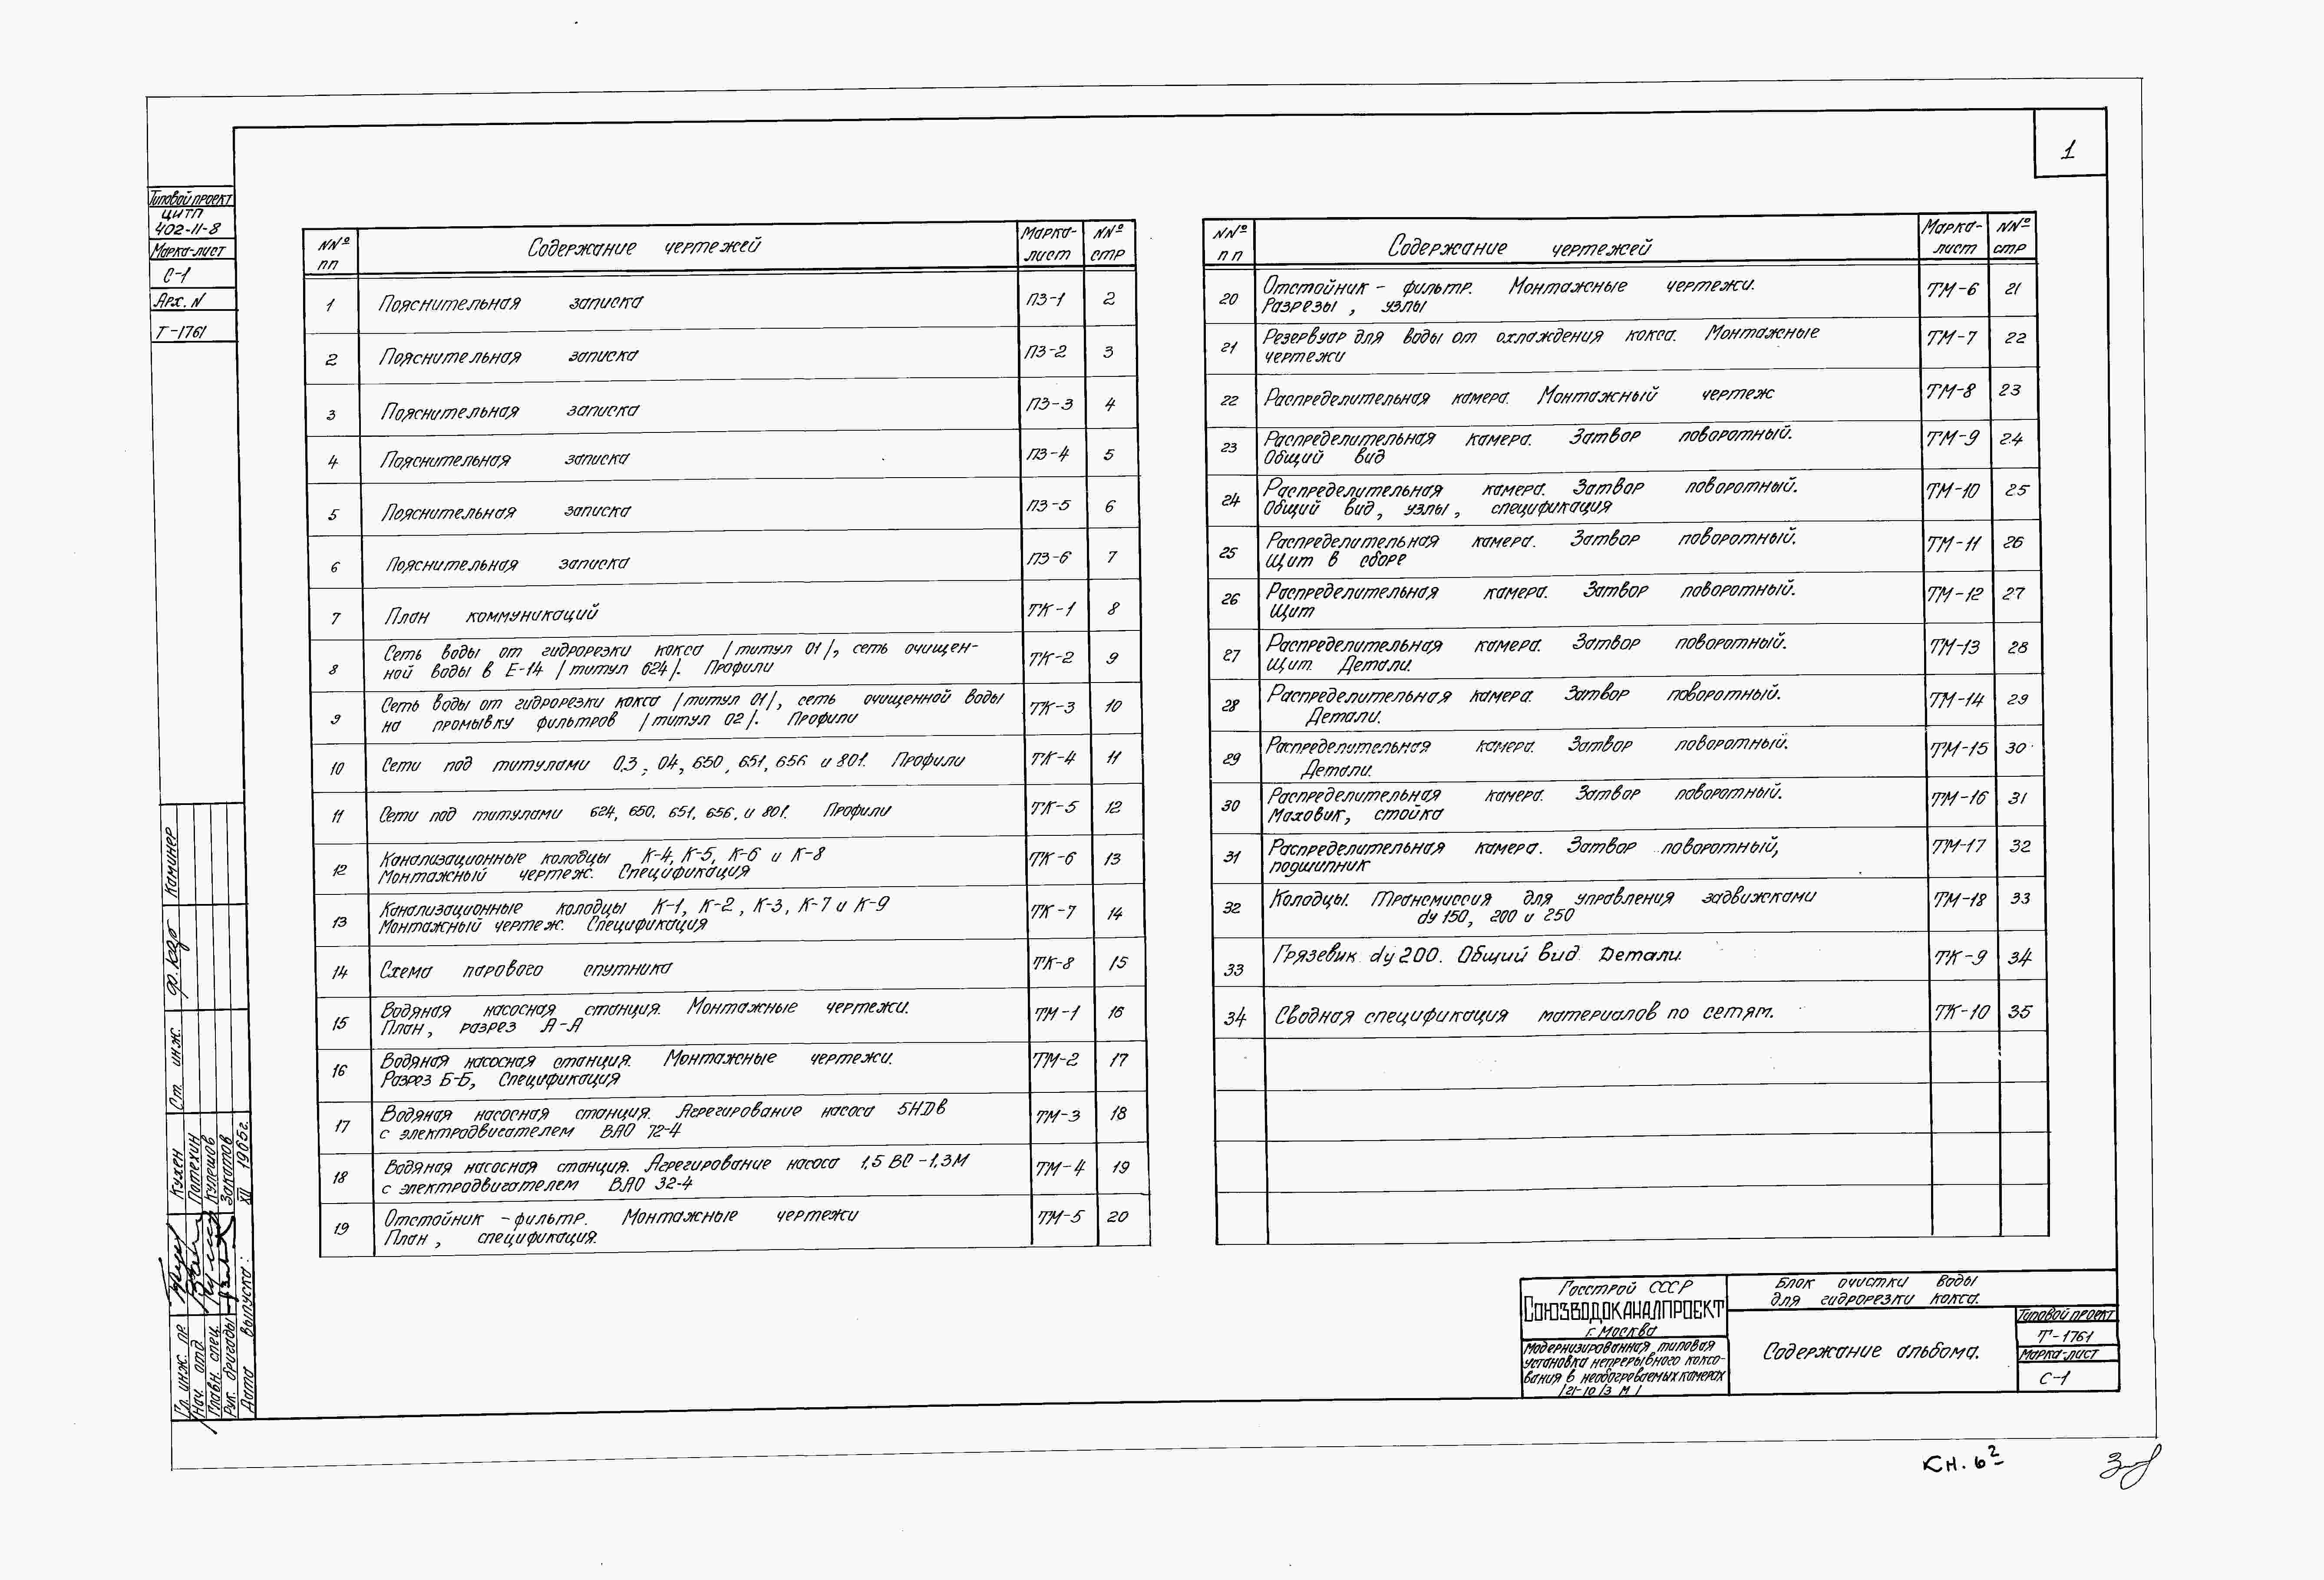 1
Типовой проект
ЦИТП
402-11-8
Марка-лист
С-1
Арх. N
Т-1761
NNº пп
Содержание чертежей
Марка-лист
NNº стр
1 Пояснительная записка ПЗ-1 2
2 Пояснительная записка ПЗ-2 3
3 Пояснительная записка ПЗ-3 4
4 Пояснительная записка ПЗ-4 5
5 Пояснительная записка ПЗ-5 6
6 Пояснительная записка ПЗ-6 7
7 План коммуникаций ТК-1 8
8 Сеть воды от гидрорезки кокса /титул 01/, сеть очищен-
ной воды в Е-14 /титул 624/. Профили ТК-2 9
9 Сеть воды от гидрорезки кокса /титул 01/, сеть очищенной воды
на промывку фильтров /титул 02/. Профили ТК-3 10
10 Сети под титулами 0,3, 04, 650, 651, 656 и 801. Профили ТК-4 11
11 Сети под титулами 624, 650, 651, 656, и 801. Профили ТК-5 12
12 Канализационные колодцы К-4, К-5, К-6 и К-8
Монтажный чертеж. Спецификация ТК-6 13
13 Канализационные колодцы К-1, К-2, К-3, К-7 и К-9
Монтажный чертеж. Спецификация ТК-7 14
14 Схема парового спутника ТК-8 15
15 Водяная насосная станция. Монтажные чертежи.
План, разрез А-А ТМ-1 16
16 Водяная насосная станция. Монтажные чертежи.
Разрез Б-Б, Спецификация ТМ-2 17
17 Водяная насосная станция. Агрегирование насоса 5НДв
с электродвигателем ВАО 72-4 ТМ-3 18
18 Водяная насосная станция. Агрегирование насоса 1,5 ВС-1,3М
с электродвигателем ВАО 32-4 ТМ-4 19
19 Отстойник-фильтр. Монтажные чертежи
План, спецификация. ТМ-5 20
NNº пп
Содержание чертежей
Марка-лист
NNº стр
20 Отстойник - фильтр. Монтажные чертежи.
Разрезы, узлы ТМ-6 21
21 Резервуар для воды от охлаждения кокса. Монтажные
чертежи ТМ-7 22
22 Распределительная камера. Монтажный чертеж ТМ-8 23
23 Распределительная камера. Затвор поворотный.
Общий вид ТМ-9 24
24 Распределительная камера. Затвор поворотный.
Общий вид, узлы, спецификация ТМ-10 25
25 Распределительная камера. Затвор поворотный.
Щит в сборе ТМ-11 26
26 Распределительная камера. Затвор поворотный.
Щит ТМ-12 27
27 Распределительная камера. Затвор поворотный.
Щит. Детали. ТМ-13 28
28 Распределительная камера. Затвор поворотный.
Детали. ТМ-14 29
29 Распределительная камера. Затвор поворотный.
Детали. ТМ-15 30
30 Распределительная камера. Затвор поворотный.
Маховик, стойка ТМ-16 31
31 Распределительная камера. Затвор поворотный,
подшипник ТМ-17 32
32 Колодцы. Трансмиссия для управления задвижками
dу 150, 200 и 250 ТМ-18 33
33 Грязевик dу 200. Общий вид. Детали. ТК-9 34
34 Сводная спецификация материалов по сетям. ТК-10 35
Гл. инж. пр. Кухен
Нач. отд. Потехин
Главн. спец. Кулешов
Рук. бригады Закатов
Дата выпуска: XII 1965г.
Ст. инж. Каминер
Госстрой СССР
СОЮЗВОДОКАНАЛПРОЕКТ
г. Москва
Модернизированная типовая
установка непрерывного коксо-
вания в необогреваемых камерах
/21-10/3 М/
Блок очистки воды
для гидрорезки кокса.
Содержание альбома.
Типовой проект
Т-1761
Марка-лист
С-1
КН. 6²